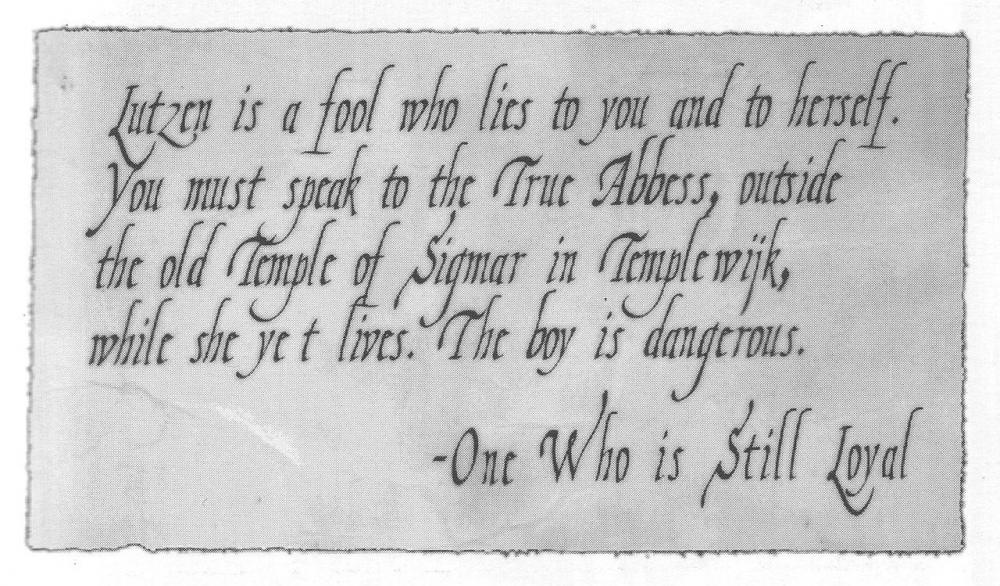 Lutzen is a fool who lies to you and to herself.
You must speak to the True Abbess, outside
the old Temple of Sigmar in Templewijk,
while she yet lives. The boy is dangerous.
-One Who is Still Loyal